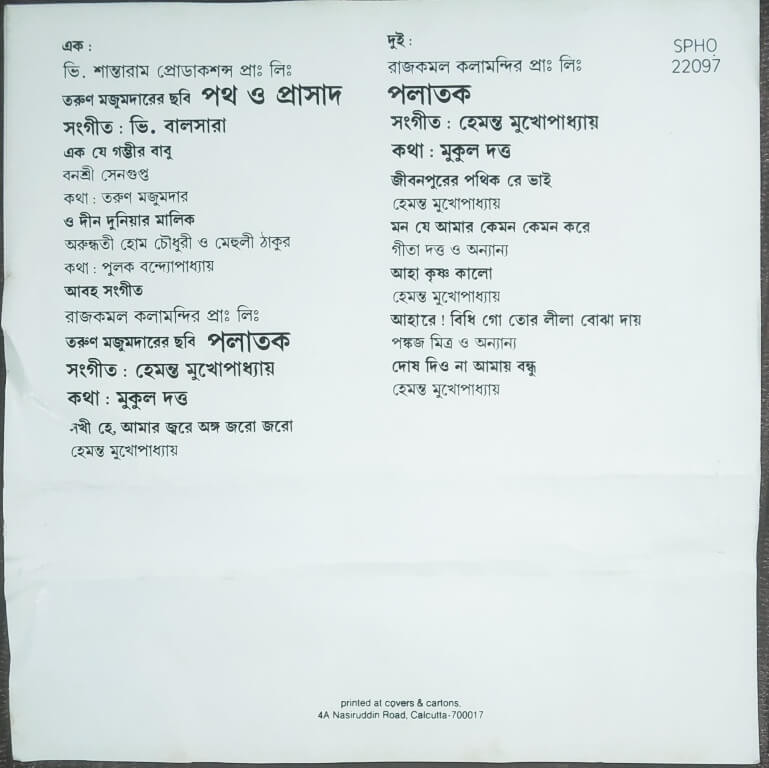 এক :
ভি. শান্তারাম প্রোডাকশন্স প্রাঃ লিঃ
তরুণ মজুমদারের ছবি পথ ও প্রাসাদ
সংগীত : ভি. বালসারা
এক যে গম্ভীর বাবু
বনশ্রী সেনগুপ্ত
কথা : তরুণ মজুমদার
ও দীন দুনিয়ার মালিক
অরুন্ধতী হোম চৌধুরী ও মেহুলী ঠাকুর
কথা : পুলক বন্দ্যোপাধ্যায়
আবহ সংগীত
রাজকমল কলামন্দির প্রাঃ লিঃ
তরুণ মজুমদারের ছবি পলাতক
সংগীত : হেমন্ত মুখোপাধ্যায়
কথা : মুকুল দত্ত
সখী হে, আমার জ্বরে অঙ্গ জরো জরো
হেমন্ত মুখোপাধ্যায়
দুই :
রাজকমল কলামন্দির প্রাঃ লিঃ
পলাতক
সংগীত : হেমন্ত মুখোপাধ্যায়
কথা : মুকুল দত্ত
জীবনপুরের পথিক রে ভাই
হেমন্ত মুখোপাধ্যায়
মন যে আমার কেমন কেমন করে
গীতা দত্ত ও অন্যান্য
আহা কৃষ্ণ কালো
হেমন্ত মুখোপাধ্যায়
আহারে ! বিধি গো তোর লীলা বোঝা দায়
পঙ্কজ মিত্র ও অন্যান্য
দোষ দিও না আমায় বন্ধু
হেমন্ত মুখোপাধ্যায়
SPHO
22097
printed at covers & cartons.
4A Nasiruddin Road, Calcutta-700017